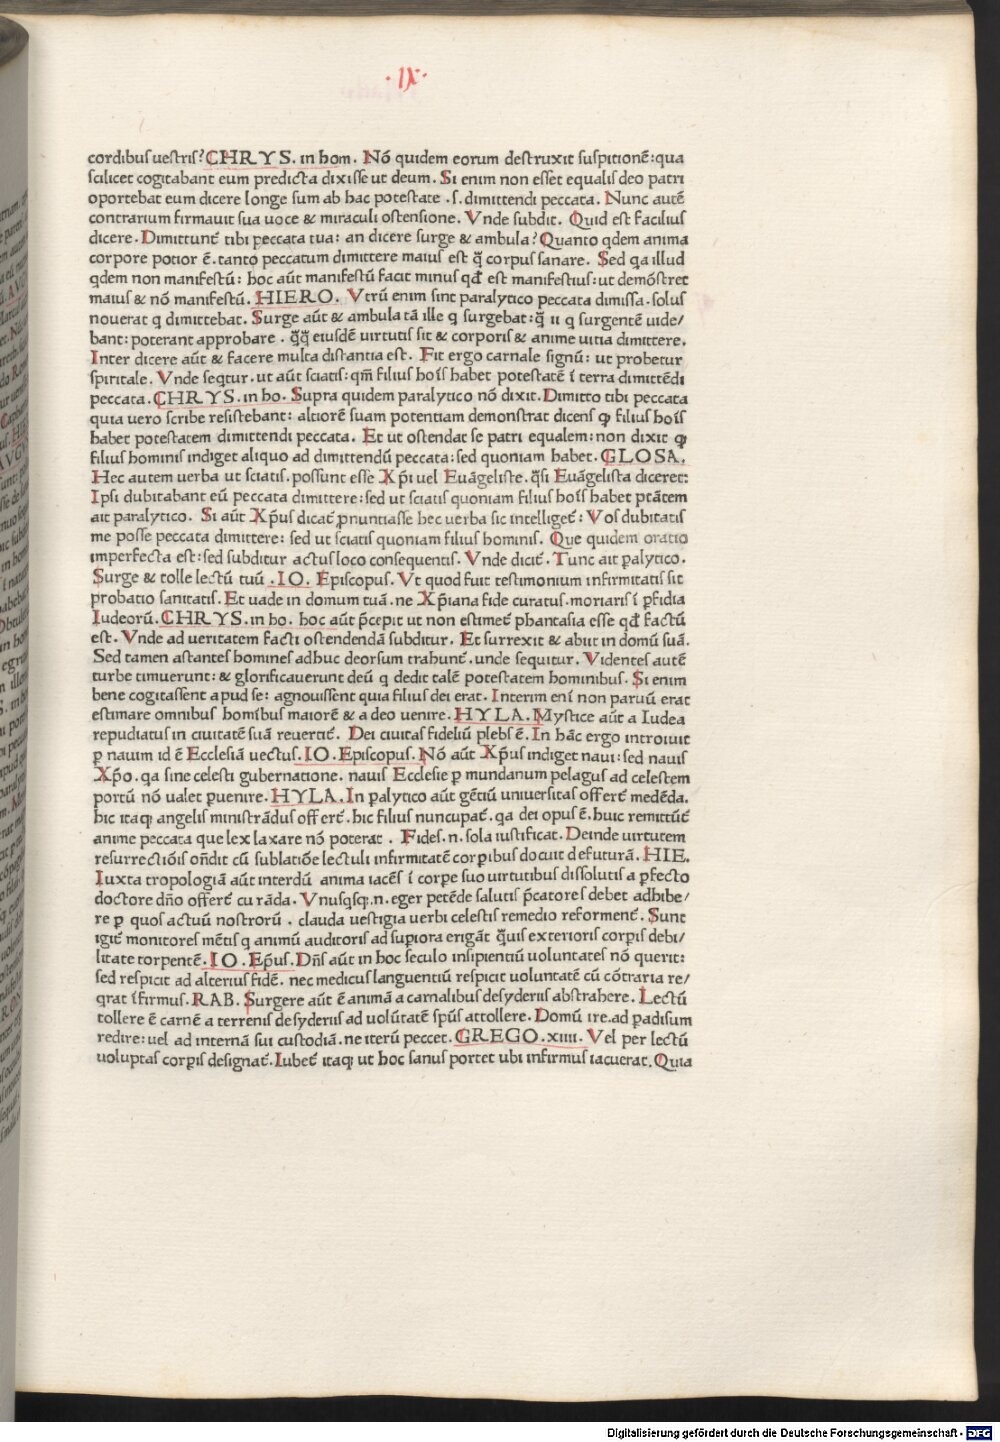 ·IX·
cordibus uestris? CHRYS. in hom. Nō quidem eorum destruxit suspitionē: qua
scilicet cogitabant eum predicta dixisse ut deum. Si enim non esset equalis deo patri
oportebat eum dicere longe sum ab hac potestate .s. dimittendi peccata. Nunc autē
contrarium firmauit sua uoce & miraculi ostensione. Vnde subdit. Quid est facilius
dicere. Dimittunt̄ tibi peccata tua: an dicere surge & ambula? Quanto qdem anima
corpore potior ē. tanto peccatum dimittere maius est q̄ corpus sanare. Sed qa illud
qdem non manifestū: hoc aūt manifestū facit minus qd̄ est manifestius: ut demōstret
maius & nō manifestū. HIERO. Vtrū enim sint paralytico peccata dimissa. solus
nouerat q dimittebat. Surge aūt & ambula tā ille q surgebat: q̄ ii q surgentē uide/
bant: poterant approbare . q̄q̄ eiusdē uirtutis sit & corporis & anime uitia dimittere.
Inter dicere aūt & facere multa distantia est. Fit ergo carnale signū: ut probetur
spiritale. Vnde seqtur. ut aūt sciatis: qm̄ filius hoīs habet potestatē ī terra dimittēdi
peccata. CHRYS. in ho. Supra quidem paralytico nō dixit. Dimitto tibi peccata
quia uero scribe resistebant: altiorē suam potentiam demonstrat dicens ꝙ filius hoīs
habet potestatem dimittendi peccata. Et ut ostendat se patri equalem: non dixit ꝙ
filius hominis indiget aliquo ad dimittendū peccata: sed quoniam habet. GLOSA.
Hec autem uerba ut sciatis. possunt esse Xp̄i uel Euāgeliste. q̄si Euāgelista diceret:
Ipsi dubitabant eū peccata dimittere: sed ut sciatis quoniam filius hoīs habet ptātem
ait paralytico. Si aūt Xp̄us dicat̄ ꝓnuntiasse hec uerba sic intelliget̄: Vos dubitatis
me posse peccata dimittere: sed ut sciatis quoniam filius hominis. Que quidem oratio
imperfecta est: sed subditur actus loco consequentis. Vnde dicit̄. Tunc ait ꝑalytico.
Surge & tolle lectū tuū .IO. Episcopus. Vt quod fuit testimonium infirmitatis sit
probatio sanitatis. Et uade in domum tuā. ne Xp̄iana fide curatus. moriaris ī ꝑfidia
Iudeorū. CHRYS. in ho. hoc aūt p̄cepit ut non estimet̄ phantasia esse qd̄ factū
est. Vnde ad ueritatem facti ostendendā subditur. Et surrexit & abiit in domū suā.
Sed tamen astantes homines adhuc deorsum trahunt̄. unde sequitur. Videntes autē
turbe timuerunt: & glorificauerunt deū q dedit talē potestatem hominibus. Si enim
bene cogitassent apud se: agnouissent quia filius dei erat. Interim eni non paruū erat
estimare omnibus homībus maiorē & a deo uenire. HYLA. Mystice aūt a Iudea
repudiatus in ciuitatē suā reuertit̄. Dei ciuitas fideliū plebs ē. In hāc ergo introiuit
ꝑ nauim id ē Ecclesiā uectus. IO. Episcopus. Nō aūt Xp̄us indiget naui: sed nauis
Xp̄o. qa sine celesti gubernatione. nauis Ecclesie ꝑ mundanum pelagus ad celestem
portū nō ualet ꝑuenire. HYLA. In ꝑalytico aūt gētiū uniuersitas offert̄ medēda.
hic itaq; angelis ministrādus offert̄. hic filius nuncupat̄. qa dei opus ē. huic remittūt̄
anime peccata que lex laxare nō poterat . Fides .n. sola iustificat. Deinde uirtutem
resurrectiōis on̄dit cū sublatiōe lectuli infirmitatē corꝑibus docuit defuturā. HIE.
Iuxta tropologiā aūt interdū anima iacēs ī corpe suo uirtutibus dissolutis a ꝑfecto
doctore dn̄o offert̄ curāda. Vnusqsq; .n. eger petēde salutis p̄catores debet adhibe/
re ꝑ quos actuū nostrorū . clauda uestigia uerbi celestis remedio reforment̄. Sunt
igit̄ monitores mētis q animū auditoris ad suꝑiora erigāt q̄uis exterioris corꝑis debi/
litate torpentē. IO. Ep̄us. Dn̄s aūt in hoc seculo insipientiū uoluntates nō querit:
sed respicit ad alterius fidē. nec medicus languentiū respicit uoluntatē cū cōtraria re/
qrat īfirmus. RAB. Surgere aūt ē animā a carnalibus desyderiis abstrahere. Lectū
tollere ē carnē a terrenis desyderiis ad uolūtatē sp̄us attollere. Domū ire. ad ꝑadisum
redire: uel ad internā sui custodiā. ne iterū peccet. GREGO. xiiii. Vel per lectū
uoluptas corꝑis designat̄. Iubet̄ itaq; ut hoc sanus portet ubi infirmus iacuerat. Quia
Digitalisierung gefördert durch die Deutsche Forschungsgemeinschaft - DFG